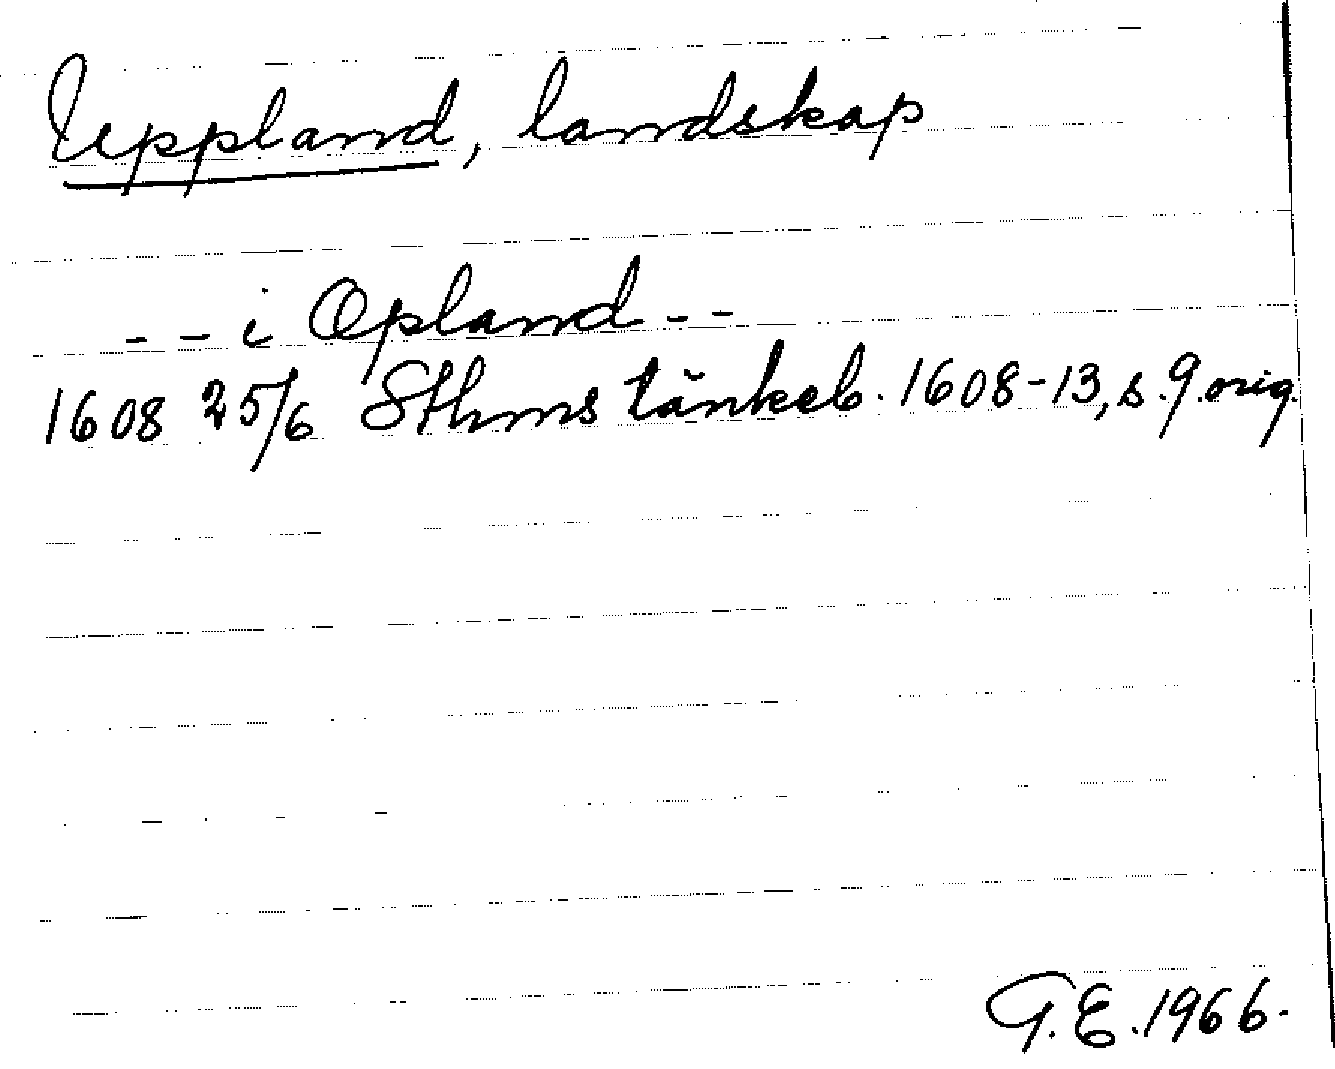 Uppland, landskap
-- i Opland --
1608 25/6 Sthms tänkeb. 1608-13, s. 9. orig.
G.E. 1966.